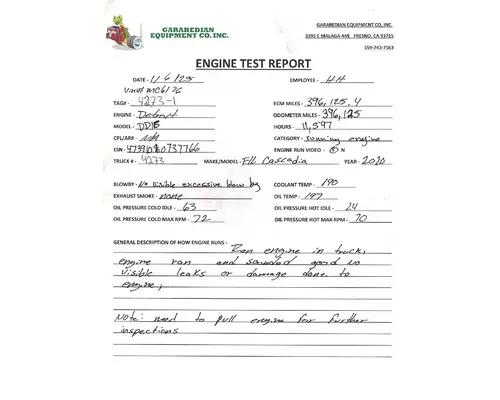 GARABEDIAN
EQUIPMENT CO, INC.
GARABEDIAN EQUIPMENT CO, INC.
3395 E MALAGA AVE FRESNO, CA 93725
559-743-7563
ENGINE TEST REPORT
DATE - 11 6 25 EMPLOYEE - HH
Vin# MC6176
TAG# 4273-1 ECM MILES - 396,125.4
ENGINE - Detroit ODOMETER MILES - 396,125
MODEL - DD15 HOURS - 11,597
CPL/ARR - N/A CATEGORY - Running engine
ESN - ENGINE RUN VIDEO - Y N
TRUCK # - 4273 MAKE/MODEL - FHL Cascadia YEAR - 2020
BLOWBY - No visible excessive blow by COOLANT TEMP - 190
EXHAUST SMOKE - none OIL TEMP - 197
OIL PRESSURE COLD IDLE - 63 OIL PRESSURE HOT IDLE - 24
OIL PRESSURE COLD MAX RPM - 72 OIL PRESSURE HOT MAX RPM - 70
GENERAL DESCRIPTION OF HOW ENGINE RUNS - Ran engine in truck,
engine ran and sounded good no
visible leaks or damage done to
engine,
Note: need to pull engine for further
inspections